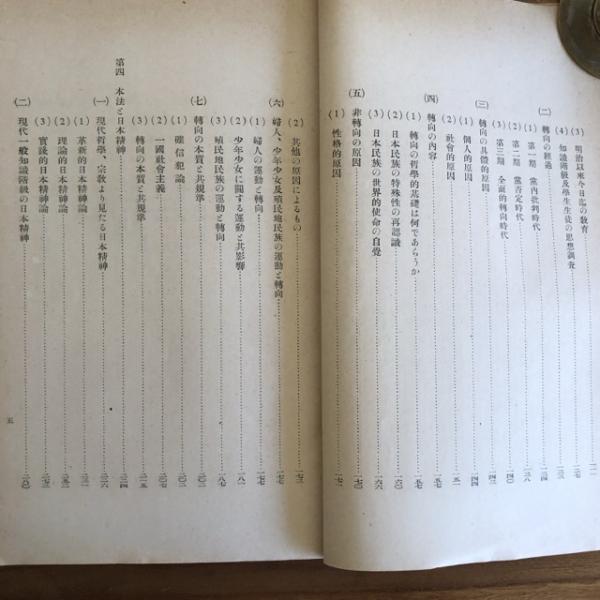 (3) 明治以來今日迄の敎育
(4) 知識階級及學生生徒の思想調査
(二) 轉向の經過
(1) 第一期 黨內批判時代
(2) 第二期 黨否定時代
(3) 第三期 全面的轉向時代
(三) 轉向の具體的原因
(1) 個人的原因
(2) 社會的原因
(四) 轉向の內容
(1) 轉向の哲學的基礎は何であらうか
(2) 日本民族の特殊性の再認識
(3) 日本民族の世界的使命の自覺
(五) 非轉向の原因
(1) 性格的原因
(2) 其他の原因によるもの
(六) 婦人、少年少女及殖民地民族の運動と轉向
(1) 婦人の運動と轉向
(2) 少年少女に關する運動と其影響
(3) 殖民地民族の運動と轉向
(七) 轉向の本質と其規準
(1) 確信犯論
(2) 一國社會主義
(3) 轉向の本質と其規準
第四 本法と日本精神
(一) 現代哲學、宗敎より見たる日本精神
(1) 革新的日本精神論
(2) 理論的日本精神論
(3) 實踐的日本精神論
(二) 現代一般知識階級の日本精神
五